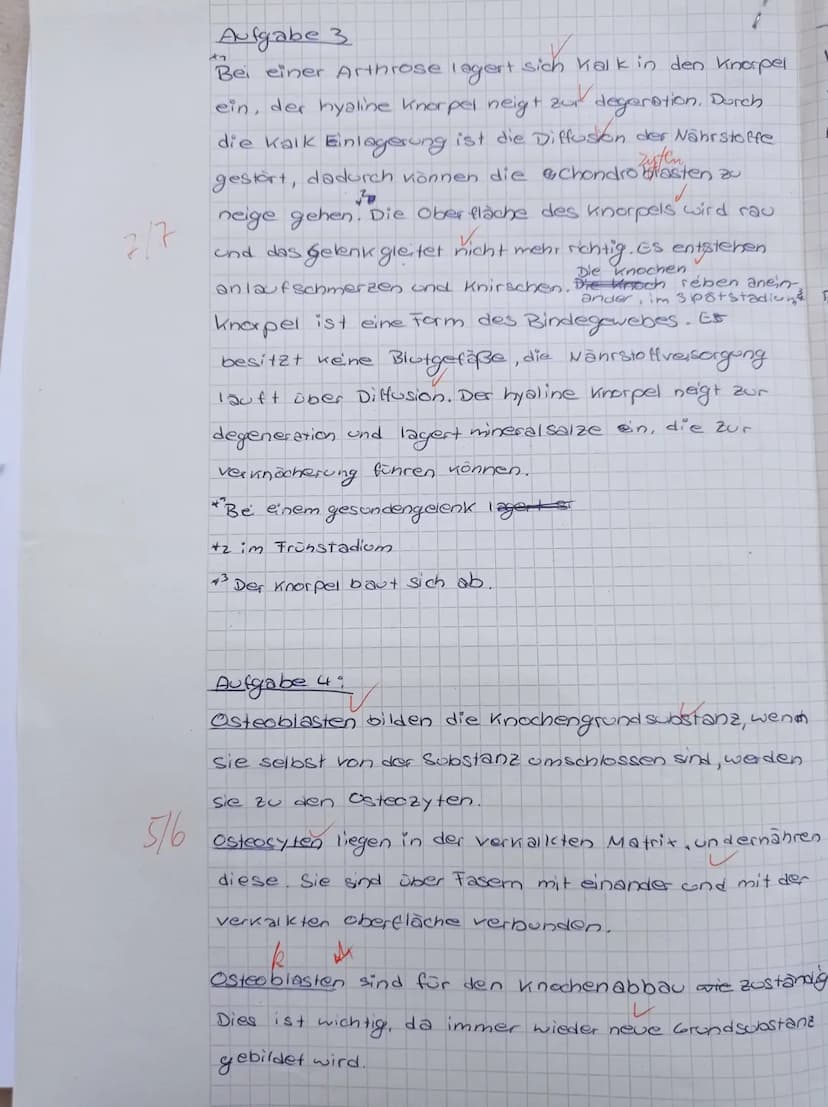 Aufgabe 3
*1
Bei einer Arthrose lagert sich Kalk in den Knorpel
ein, der hyaline Knorpel neigt zur degeration. Durch
die Kalk Einlagerung ist die Diffusion der Nährstoffe
zyten
gestört, dadurch können die Chondroblasten zu
*2
neige gehen. Die Oberfläche des Knorpels wird rau
2/7
und das Gelenk gleitet nicht mehr richtig. Es entstehen
Die Knochen
anlaufschmerzen und Knirschen. Die Knoch reben anein-
ander, im Spätstadium *3
Knorpel ist eine Form des Bindegewebes. Er
besitzt keine Blutgefäße, die Nährstoffversorgung
läuft über Diffusion. Der hyaline Knorpel neigt zur
degeneration und lagert mineralsalze ein, die zur
verknöcherung führen können.
*1 Bei einem gesundengelenk lagert er
*2 im Frühstadium
*3 Der Knorpel baut sich ab.
Aufgabe 4:
Osteoblasten bilden die Knochengrundsubstanz, wenn
sie selbst von der Substanz umschlossen sind, werden
sie zu den Osteozyten.
5/6
Osteocyten liegen in der verkalkten Matrix, undernähren
diese. Sie sind über Fasern mit einander und mit der
verkalkten Oberfläche verbunden.
k
Osteoblasten sind für den Knochenabbau wie zuständig
Dies ist wichtig, da immer wieder neue Grundsubstanz
gebildet wird.